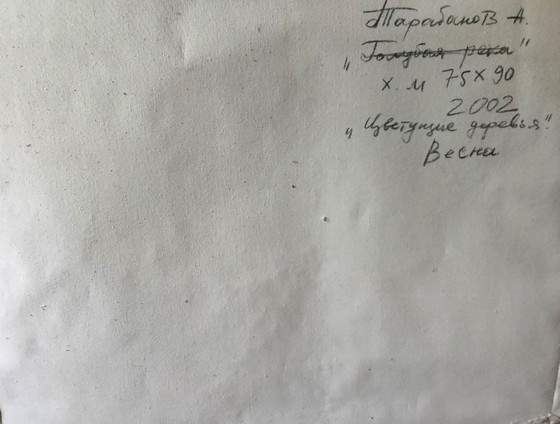 Тарабанов А.
"Голубая река"
х. м 75х90
2002
"Цветущие деревья"
Весна